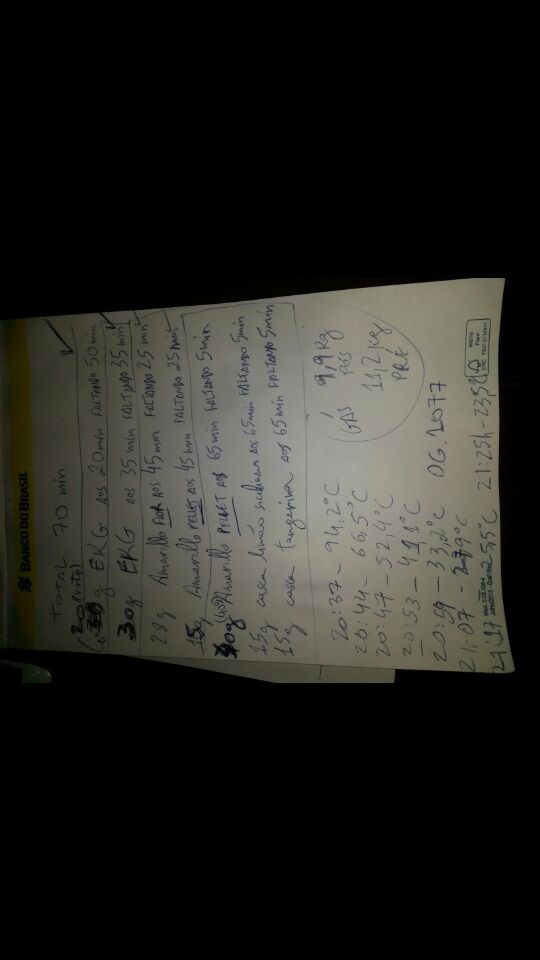 BANCO DO BRASIL
TOTAL 70 min
20 (vinte)
g EKG AOS 20min FALTANDO 50min
30g EKG AOS 35 min FALTANDO 35 min
28g Amarillo FLOR AOS 45 min FALTANDO 25 min
15g Amarillo PELLET AOS 45 min FALTANDO 25 min
Amarillo PELLET AOS 65 min FALTANDO 5 min
15g casca limão siciliano AOS 65min FALTANDO 5min
15g casca tangerina AOS 65 min FALTANDO 5 min
GÁS 9,9 kg
PÓS
11,2 kg
PRÉ
20:37 - 94,2°C
20:44 - 66,5°C
20:47 - 52,4°C
20:53 - 41,1°C
20:59 - 33,2°C 06.2077
21:07 - 27,9°C
21:17 25,5°C 21:25h - 23,5°C
MISTO
Papel
FSC